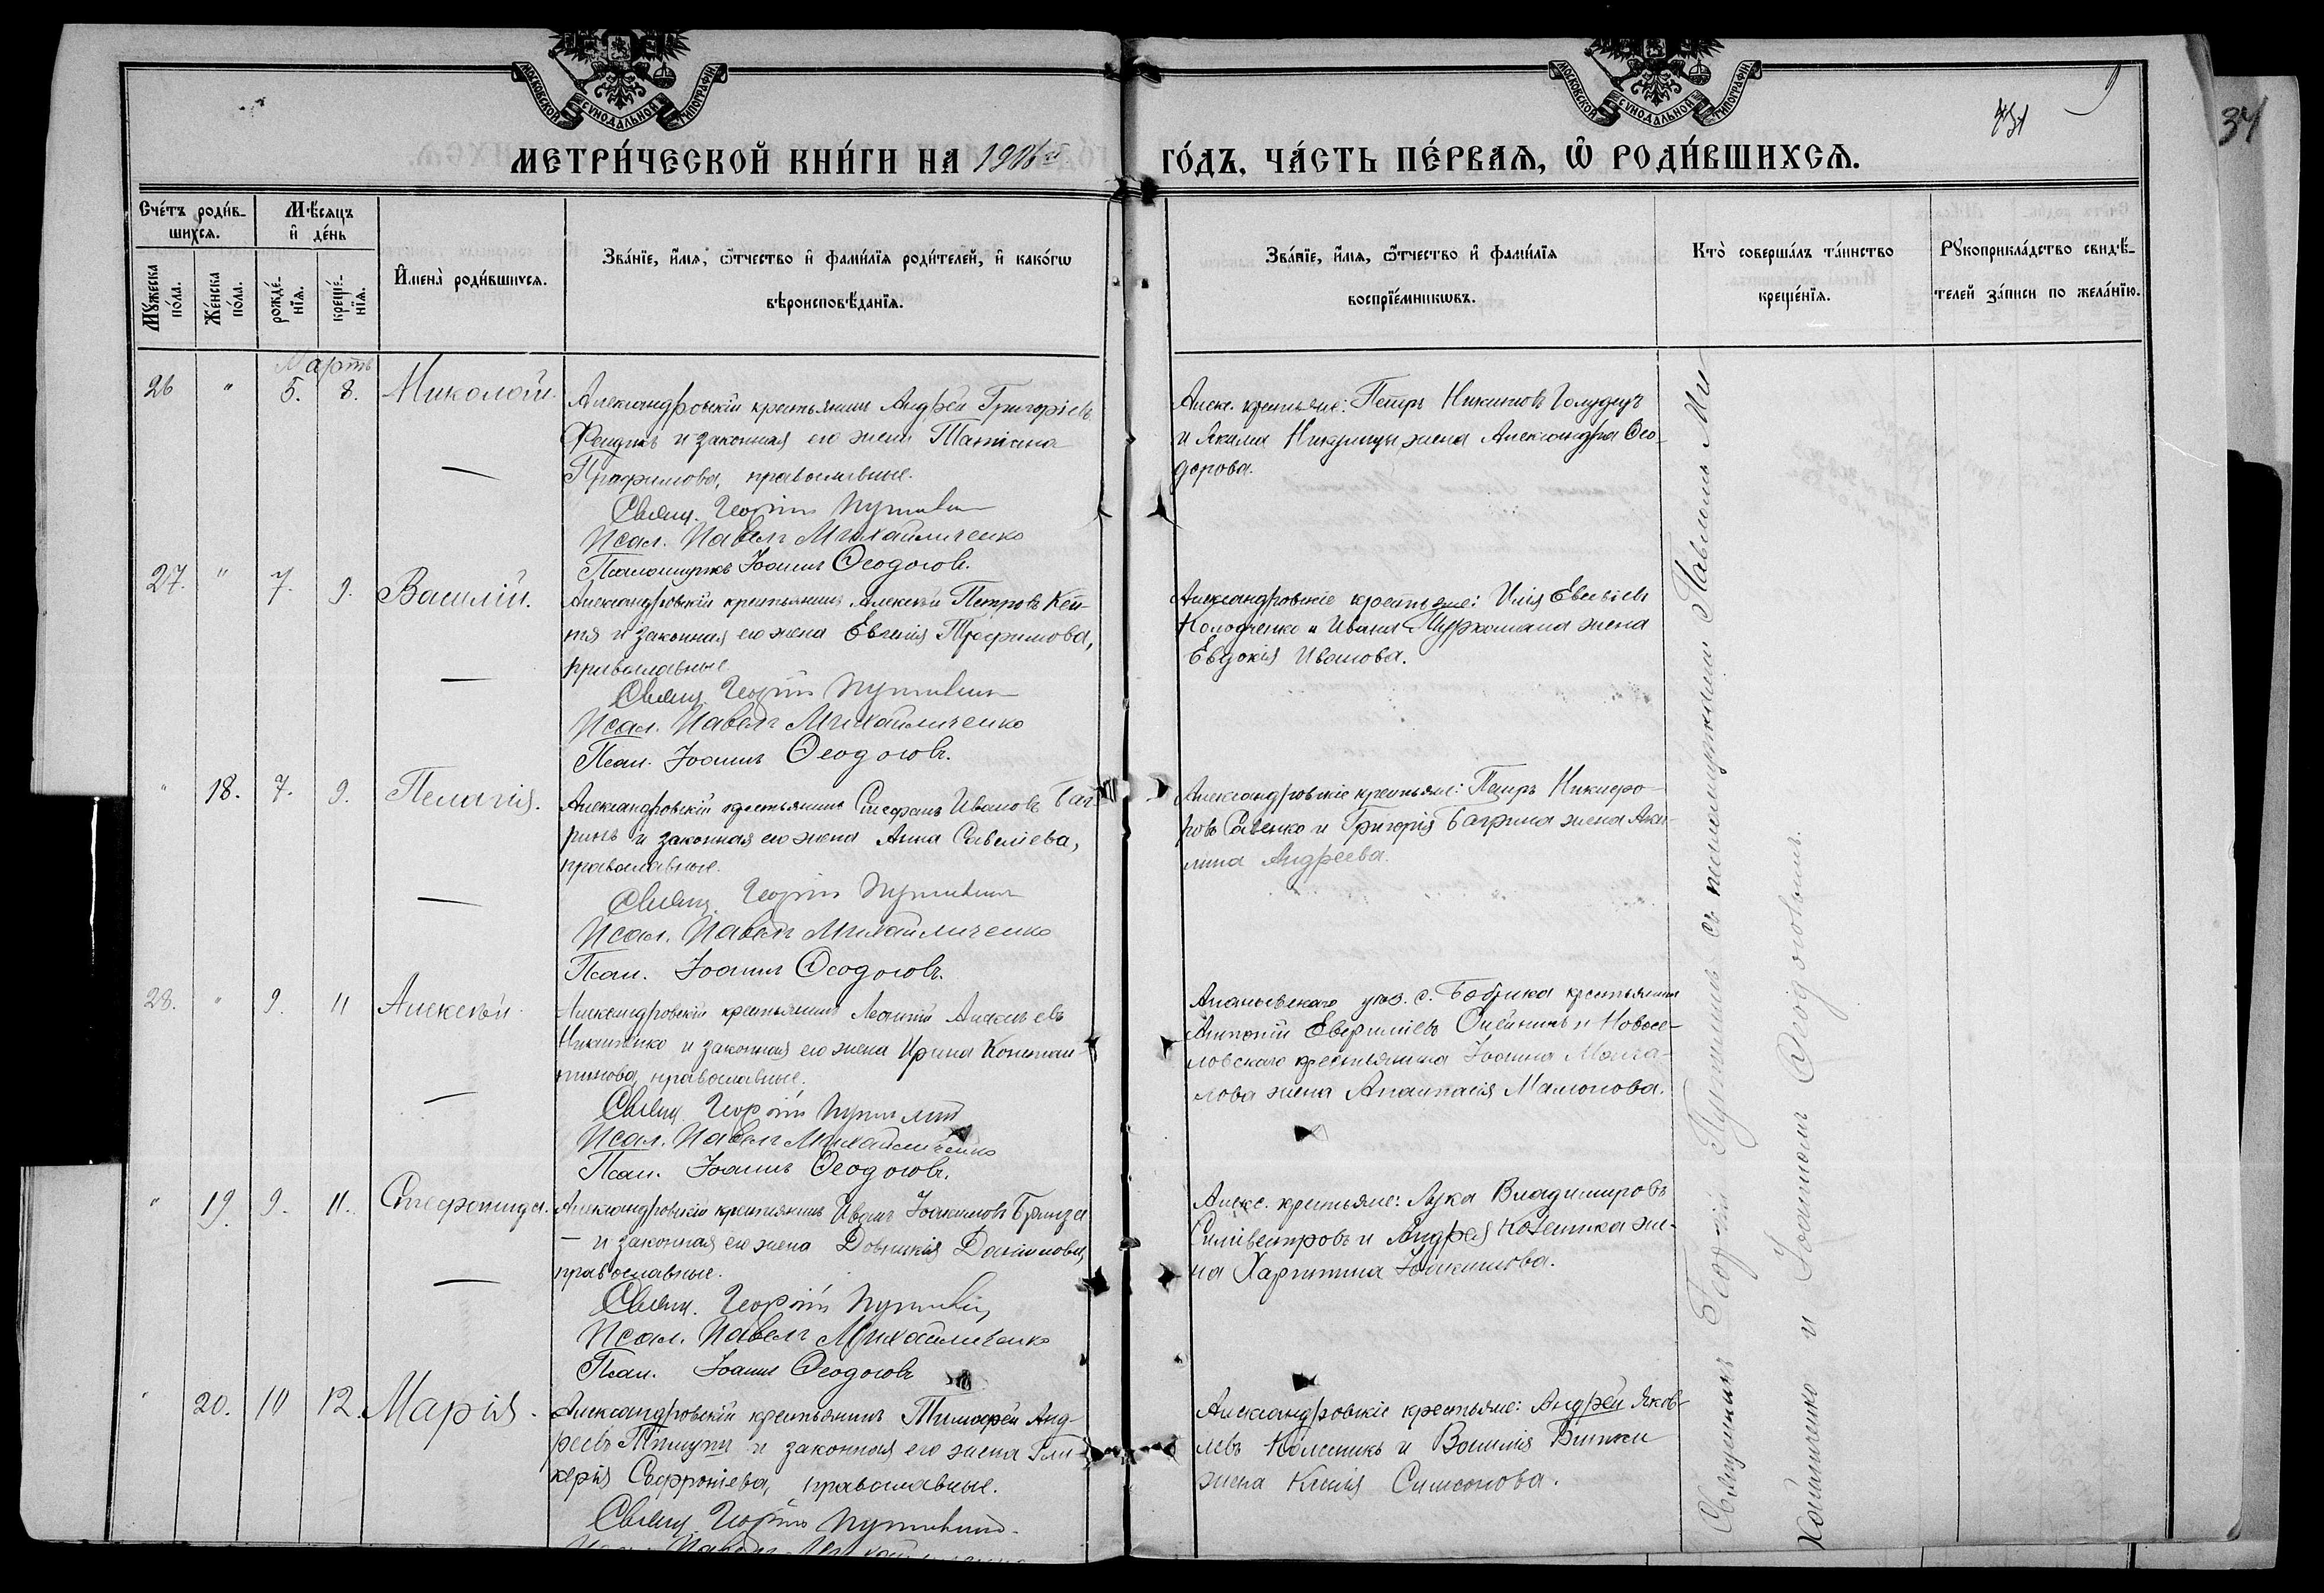 МОСКОВСКОЙ СѴНОДАЛЬНОЙ ТИПОГРАФІИ
МОСКОВСКОЙ СѴНОДАЛЬНОЙ ТИПОГРАФІИ
34
МЕТРИ́ЧЕСКОЙ КНИ́ГИ НА 1916й ГО́ДЪ, ЧА́СТЬ ПЕ́РВАЯ, Ѽ РОДИ́ВШИХСЯ.
Сче́тъ роди́в-
шихся.
Мꙋ́жеска по́ла.
Же́нска по́ла.
Мѣ́сяцъ и҆ де́нь
рожде́-нїя.
креще́-нїя.
И҆мена̀ роди́вшихся.
Зва́нїе, и҆́мя, ѻ҆́тчество и҆ фами́лїя роди́телей, и҆ како́гѡ
вѣроисповѣ́данїя.
Зва́нїе, и҆́мя, ѻ҆́тчество и҆ фами́лїя
воспрїе́мникѡвъ.
Кто̀ соверша́лъ та́инство
креще́нїя.
Рꙋкоприкла́дство свидѣ́-
телей за́писи по жела́нїю.
Мартъ
26 " 5. 8. Николай.
Александровскій крестьянинъ Андрей Григорьевъ
и законная его жена Татіана
Трофимова, православные.
Свящ. Георгій Путивлин
Псал. Павелъ Михайличенко
Псаломщикъ Іоаннъ Ѳеодоговъ.
Алекс. крестьяне: Петръ
и Якима жена Александра Ѳео-
дорова.
27. " 7. 9. Василій.
Александровскій крестьянинъ Алексѣй Петровъ Кеп-
тя и законная его жена Евгенія Трофимова,
православные
Свящ Георгій Путивлин
Псал. Павелъ Михайличенко
Псал. Іоаннъ Ѳеодоговъ.
Александровскіе крестьяне: Илія Евсевіевъ
Колодченко и Ивана Муркамана жена
Евдокія Иванова.
" 18. 7. 9. Пелагія.
Александровскій крестьянинъ Стефанъ Ивановъ Баг-
ринъ и законная его жена Анна Савеліева,
православные.
Свящ. Георгій Путивлин
Псал. Павелъ Михайличенко
Псал. Іоаннъ Ѳеодоговъ.
Александровскіе крестьяне: Петръ Никифо-
ровъ Савенко и Григорія Багрина жена Аки-
лина Андреева.
28. " 9. 11 Алексѣй.
Александровскій крестьянинъ Леонтій Алексѣевъ
Никитенко и законная его жена Ирина Констан-
тинова, православные.
Свящ Георгій Путивлин
Псал. Павелъ Михайличенко
Псал. Іоаннъ Ѳеодоговъ.
Ананьевскаго уѣз. с. Бобрика крестьянинъ
Антоній Олейникъ и Новосе-
ловскаго крестьянина Іоанна Монга-
лова жена Анастасія Мамонова.
" 19. 9. 11. Стефанида.
Александровскій крестьянинъ Иванъ Іоакимовъ Брынза
– и законная его жена Домникія
православные.
Свящ. Георгій Путивлин
Псал. Павелъ Михайличенко
Псал. Іоаннъ Ѳеодоговъ
Алекс. крестьяне: Лука Владимировъ
Силивестровъ и Андрея же-
на Харитина Іоакимова.
" 20. 10 12. Марія.
Александровскій крестьянинъ Тимофей Анд-
реевъ и законная его жена Гли-
керія Софроніева, православные.
Свящ. Георгій Путивлин
Псал. Павелъ Михайличенко
Александровскіе крестьяне: Андрей Яков-
левъ Колесникъ и Василія
жена Ксенія Симеонова.
Священникъ Георгій Путивлинъ съ псаломщиками Павломъ Ми-
хайличенко и Іоанномъ Ѳеодоговымъ.